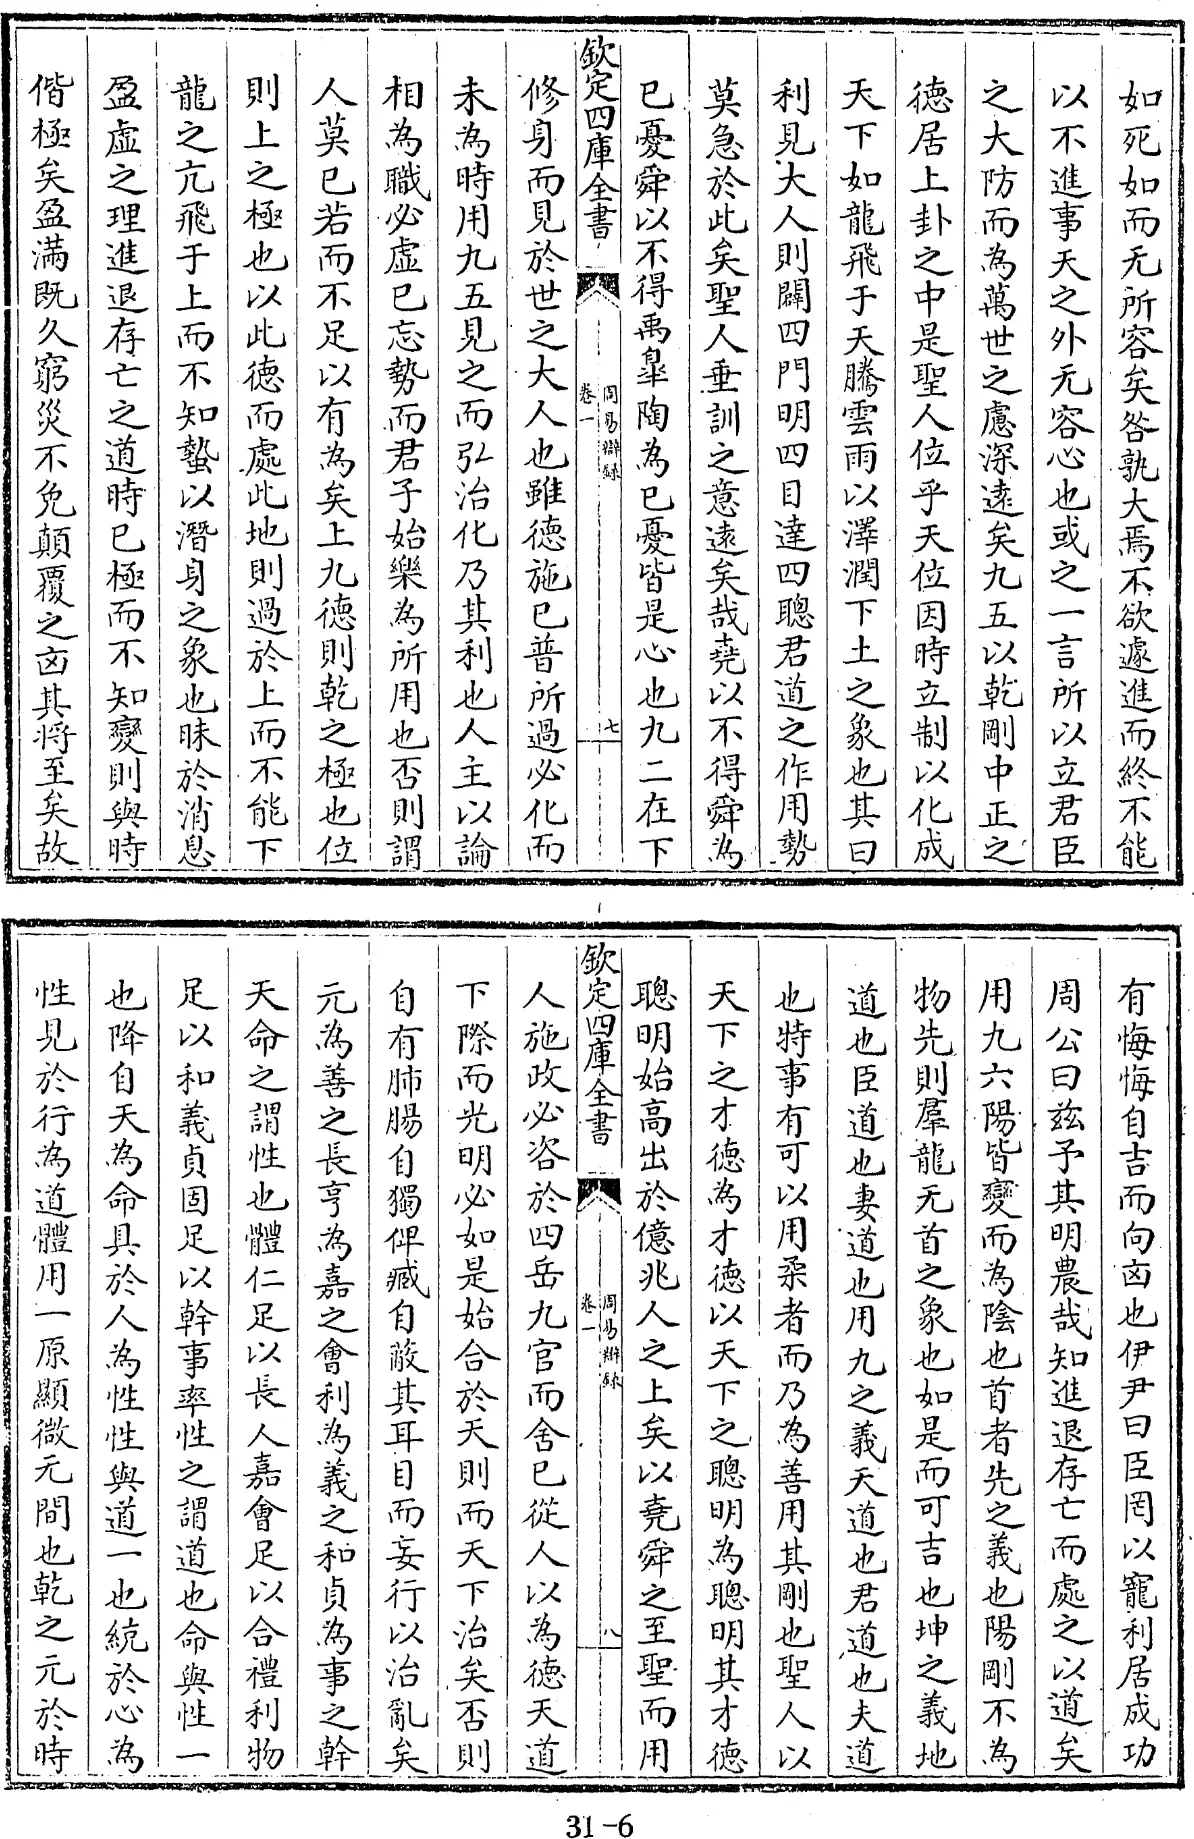 如死如而无所容矣咎孰大焉不欲遽進而終不能
以不進事天之外无容心也或之一言所以立君臣
之大防而為萬世之慮深遠矣九五以乾剛中正之
德居上卦之中是聖人位乎天位因時立制以化成
天下如龍飛于天騰雲雨以澤潤下土之象也其曰
利見大人則闢四門明四目達四聰君道之作用勢
莫急於此矣聖人垂訓之意遠矣哉堯以不得舜為
已憂舜以不得禹臯陶為已憂皆是心也九二在下
欽定四庫全書
周易辯録
卷一
七
修身而見於世之大人也雖德施已普所過必化而
未為時用九五見之而弘治化乃其利也人主以論
相為職必虛已忘勢而君子始樂為所用也否則謂
人莫已若而不足以有為矣上九德則乾之極也位
則上之極也以此德而處此地則過於上而不能下
龍之亢飛于上而不知蟄以潛身之象也昧於消息
盈虛之理進退存亡之道時已極而不知變則與時
偕極矣盈滿既久窮災不免顛覆之凶其將至矣故
有悔悔自吉而向凶也伊尹曰臣罔以寵利居成功
周公曰兹予其明農哉知進退存亡而處之以道矣
用九六陽皆變而為陰也首者先之義也陽剛不為
物先則羣龍无首之象也如是而可吉也坤之義地
道也臣道也妻道也用九之義天道也君道也夫道
也特事有可以用柔者而乃為善用其剛也聖人以
天下之才德為才德以天下之聰明為聰明其才德
聰明始高出於億兆人之上矣以堯舜之至聖而用
欽定四庫全書
周易辯録
卷一
八
人施政必咨於四岳九官而舍已從人以為德天道
下際而光明必如是始合於天則而天下治矣否則
自有肺腸自獨俾臧自蔽其耳目而妄行以治亂矣
元為善之長亨為嘉之會利為義之和貞為事之幹
天命之謂性也體仁足以長人嘉會足以合禮利物
足以和義貞固足以幹事率性之謂道也命與性一
也降自天為命具於人為性性與道一也統於心為
性見於行為道體用一原顯微无間也乾之元於時
31-6